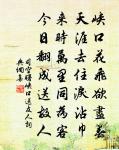 峽口花飛欲盡春
天涯去住淚沾巾
來時萬里同為客
今日翻成送故人
司空曙峽口送友人詞